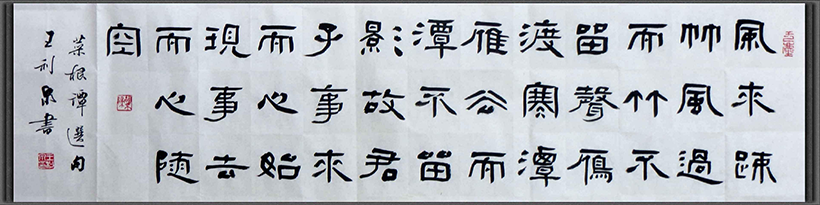 風來踈
竹風過
而竹不
留聲鴈
渡寒潭
雁去而
潭不留
影故君
子事來
而心始
現事去
而心随
空
菜根譚選句
王利泉書